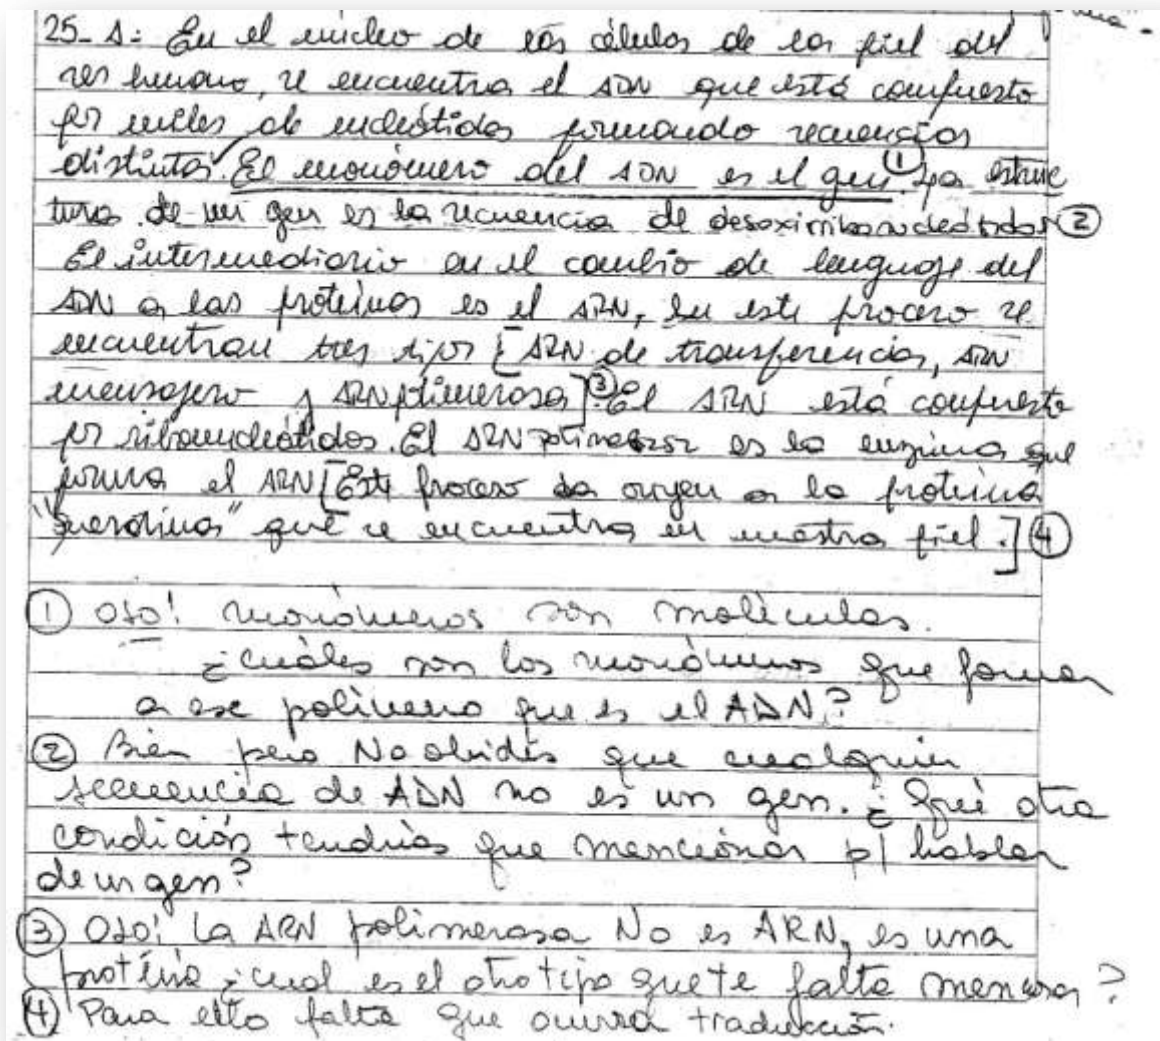 25- A: En el núcleo de las células de la piel del
ser humano, se encuentra el ADN que está compuesto
por miles de nucleótidos formando secuencias
distintas. El monómero del ADN es el gen. ① La estruc
tura de un gen es la secuencia de desoxirribonucleótidos ②
El intermediario en el cambio de lenguaje del
ADN a las proteínas es el ARN, en este proceso se
encuentran tres tipos [ARN de transferencia, ARN
mensajero y ARN polimerasa]③. El ARN está compuesto
por ribonucleótidos. El ARN polimerasa es la enzima que
forma el ARN [Este proceso da origen a la proteína
"queratina" que se encuentra en nuestra piel.] ④
① OJO! monómeros son moléculas.
¿cuáles son los monómeros que forman
a ese polímero que es el ADN?
② Bien pero No olvides que cualquier
secuencia de ADN no es un gen. ¿Qué otra
condición tendrías que mencionar p/ hablar
de un gen?
③ OJO! La ARN polimerasa No es ARN, es una
proteína ¿cual es el otro tipo que te falta mencionar?
④ Para ello falta que ocurra traducción.